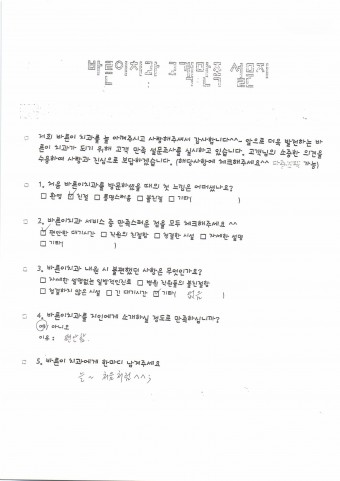 바른이치과 고객만족 설문지
저희 바른이 치과를 늘 아껴주시고 사랑해주셔서 감사합니다^^ 앞으로 더욱 발전하는 바
른이 치과가 되기 위해 고객 만족 설문조사를 실시하고 있습니다. 고객님의 소중한 의견을
수용하여 사랑과 진심으로 보답하겠습니다. (해당사항에 체크해주세요^^ 다중선택 가능)
1. 처음 바른이치과를 방문하셨을 때의 첫 느낌은 어떠셨나요?
환영 친절 불명스러움 불친절 기타( )
2. 바른이치과 서비스 중 만족스러운 점을 모두 체크해주세요 ^^
편안한 대기시간 직원의 친절함 청결한 시설 자세한 설명
기타( )
3. 바른이치과 내원 시 불편했던 사항은 무엇인가요?
자세한 설명없는 일방적인진료 병원 직원들의 불친절함
청결하지 않은 시설 긴 대기시간 기타( 없음 )
4. 바른이치과를 지인에게 소개하실 정도로 만족하십니까?
예 아니오
이유 : 편안함
5. 바른이 치과에게 한마디 남겨주세요
늘~ 처음처럼 ^^;